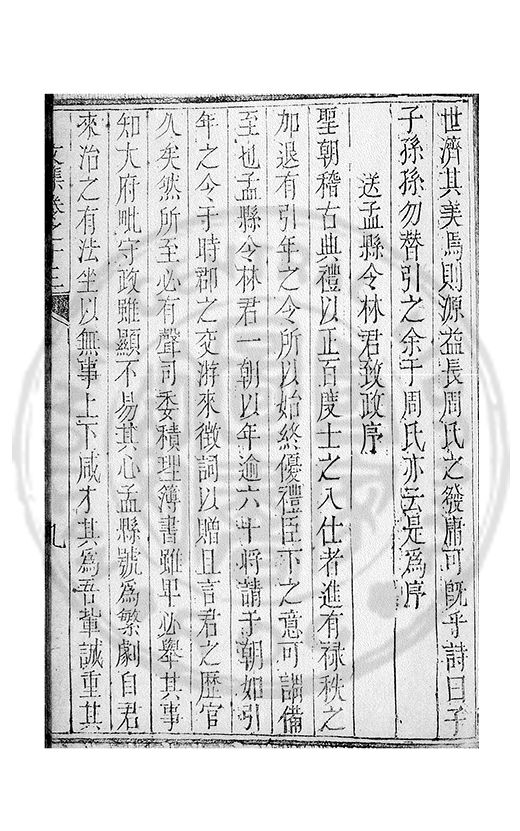 世濟其美焉則源益長周氏之發庸可旣乎詩曰子
子孫孫勿替引之余于周氏亦云是為序
送孟縣令林君致政序
聖朝稽古典禮以正百度士之入仕者進有禄秩之
加退有引年之令所以始終優禮臣下之意可謂備
至也孟縣令林君一朝以年逾六十將請于朝如引
年之令于時郡之交游來徵詞以贈且言君之歷官
久矣然所至必有聲司委積理簿書雖早必舉其事
知大府毗守政雖顯不易其心孟縣號為繁劇自君
來治之有法坐以無事上下咸才其為吾輩誠重其
文集卷之十三
九